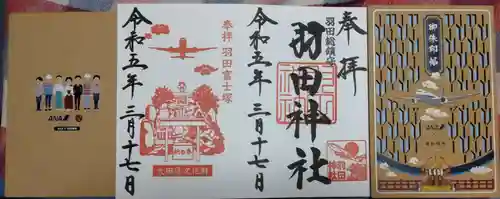 奉拝
羽田総鎮守
羽田神社
令和五年三月十七日
奉拝 羽田富士塚
大田区文化財
令和五年三月十七日
御朱印帳
ANA
ANA